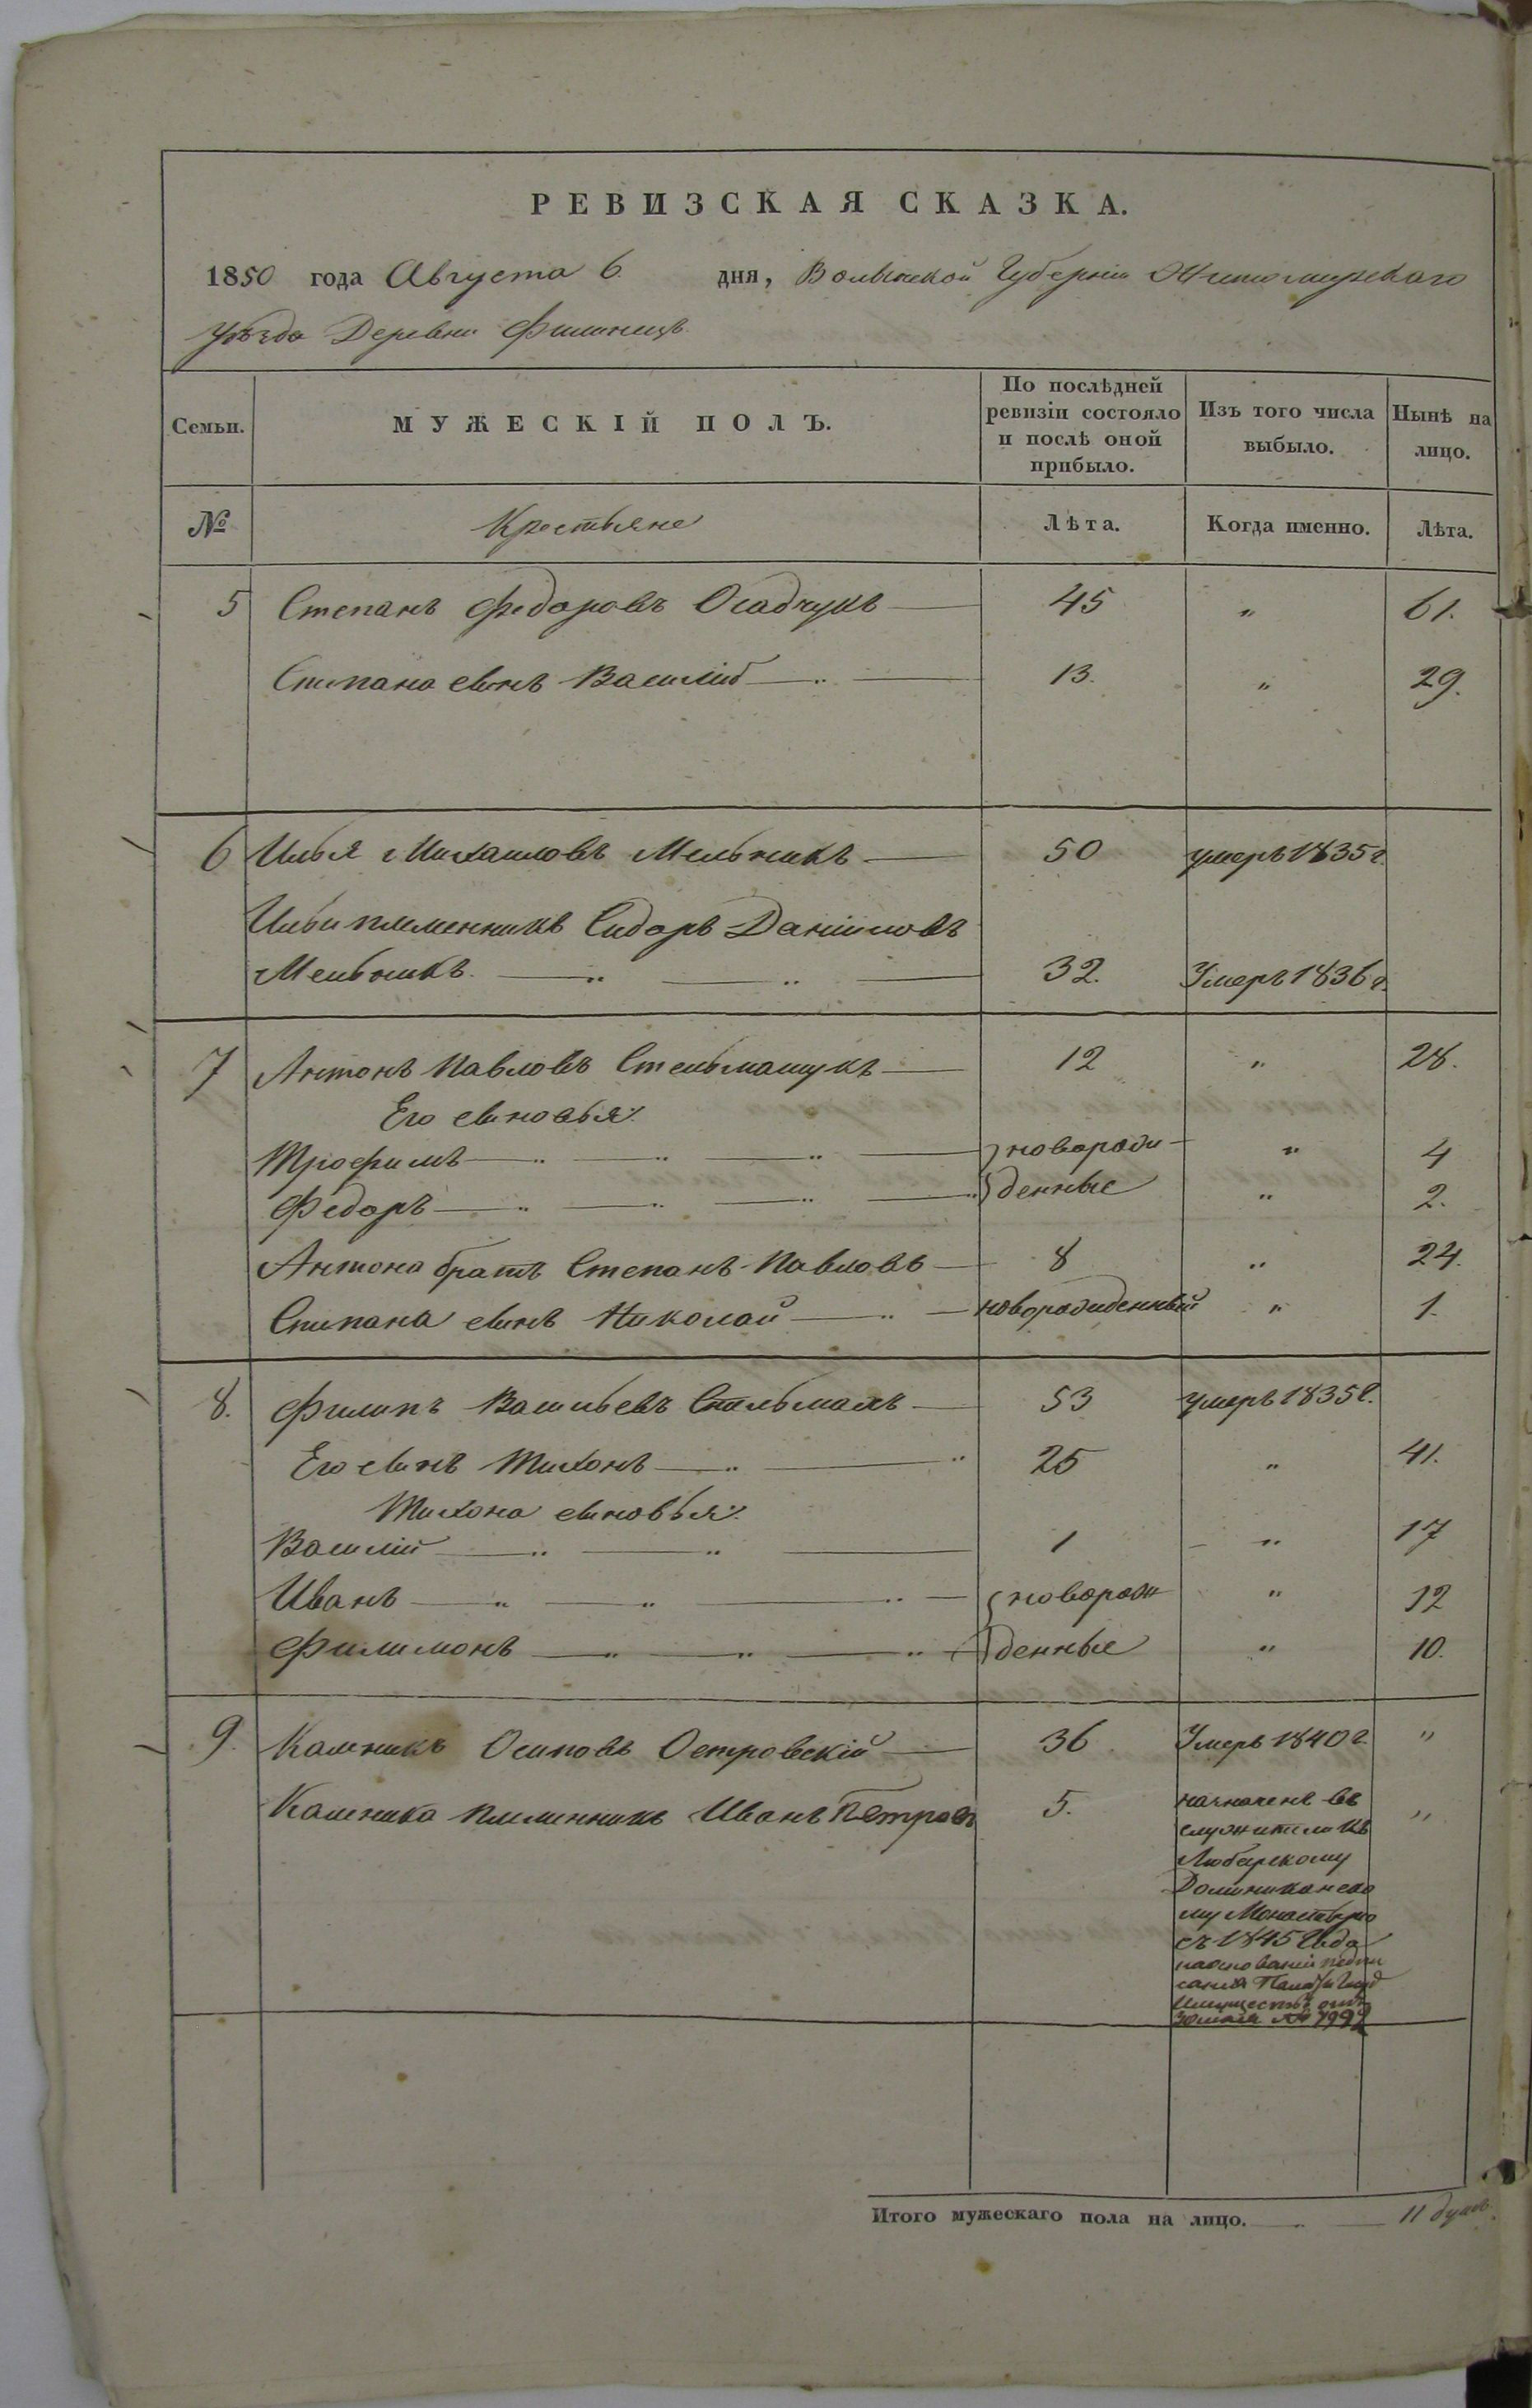 РЕВИЗСКАЯ СКАЗКА.
1850 года Августа 6 дня, Волынской Губерніи Житомирскаго
Уѣзда Деревни Филинецъ
Семьи. МУЖЕСКІЙ ПОЛЪ. По послѣдней ревизіи состояло и послѣ оной прибыло. Изъ того числа выбыло. Нынѣ на лицо.
№ Крестьяне Лѣта. Когда именно. Лѣта.
5 Степанъ Федоровъ Осадчукъ — 45 „ 61.
Степана сынъ Василій — „ — 13. „ 29.
6 Илья Михайловъ Мельникъ — 50 умеръ 1835 г
Ильи племенникъ Сидоръ Даніиловъ
Мельникъ. — „ — „ — 32. Умеръ 1836 г.
7 Антонъ Павловъ Стельмащукъ — 12 „ 28.
Его сыновья:
Трофимъ — „ — „ — „ — новорож- „ 4
Федоръ — „ — „ — „ — „ денные „ 2.
Антона братъ Степанъ Павловъ — 8 „ 24.
Степана сынъ Николай — „ — новорожденный „ 1.
8. Филипъ Васильевъ Стельмахъ — 53 умеръ 1835 г.
Его сынъ Тихонъ — „ — „ 25 „ 41.
Тихона сыновья:
Василій — „ — „ — 1 „ 17
Иванъ — „ — „ — „ — новорож „ 12
Филимонъ — „ — „ — „ — денные „ 10.
9. Каленикъ Осиповъ Островскій — 36 Умеръ 1840 г. „
Каленика племенникъ Иванъ Петровъ 5. назначенъ въ „
служители къ
Любарскому
Доминиканско
му Монастырю
съ 1845 Года
на основаніи предпи
санія Палаты Госуд
Имуществъ отъ
30 № 7992
Итого мужескаго пола на лицо. — „ — 11 душъ.